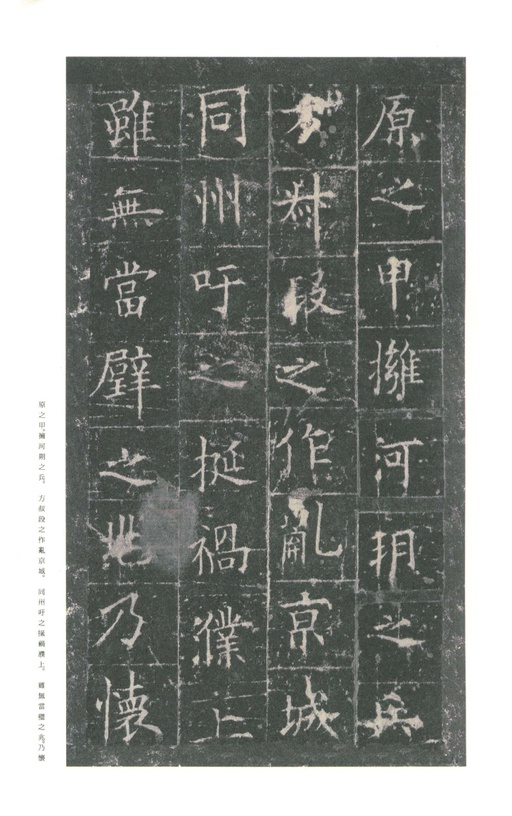 原之甲擁河朔之兵
方叔段之作亂京城
同州吁之挺禍濮上
雖無當璧之兆乃懷
原之甲,擁河朔之兵。方叔段之作亂京城。同州吁之挺禍濮上。雖無當璧之兆,乃懷